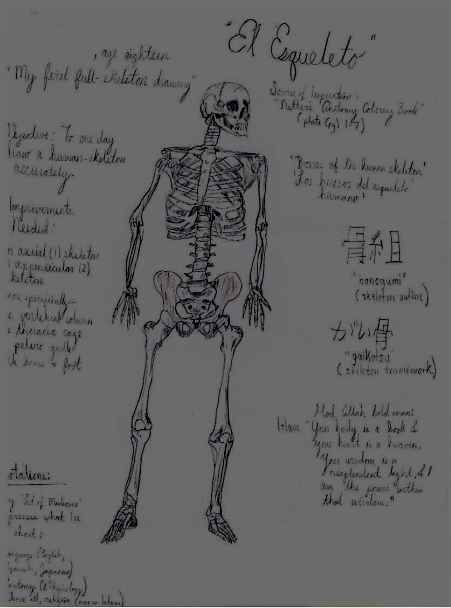 "El Esqueleto"
, age eighteen
"My first full-skeleton drawing"
Source of Inspiration:
"Netter's Anatomy Coloring Book"
(plate (pg) 1-7)
To one day
draw a human-skeleton
accurately.
Improvements
Needed:
axial (1) skeleton
appendicular (2)
skeleton
specifically
vertebral column
thoracic cage
pelvic girdle
foot
"Bones of the human skeleton"
"Los huesos del esqueleto
humano"
骨組
"honegumi"
(skeleton outline)
がい骨
"gaikotsu"
(skeleton framework)
told man:
Islam: "Your body is a book &
your heart is a heaven.
Your wisdom is a
resplendent light, & I
am the power within
that wisdom."
what I'm
about:
(English,
Japanese)
(& Physiology)
religion